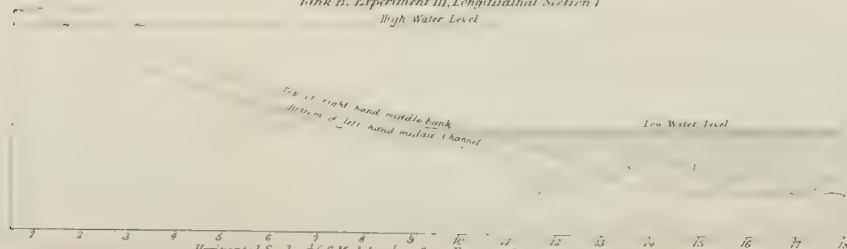 Tank E. Experiment III. Longitudinal Section 1
High Water Level
Top of right hand middle bank
Bottom of left hand middle channel
Low Water Level
1 2 3 4 5 6 7 8 9 10 11 12 13 14 15 16 17 18